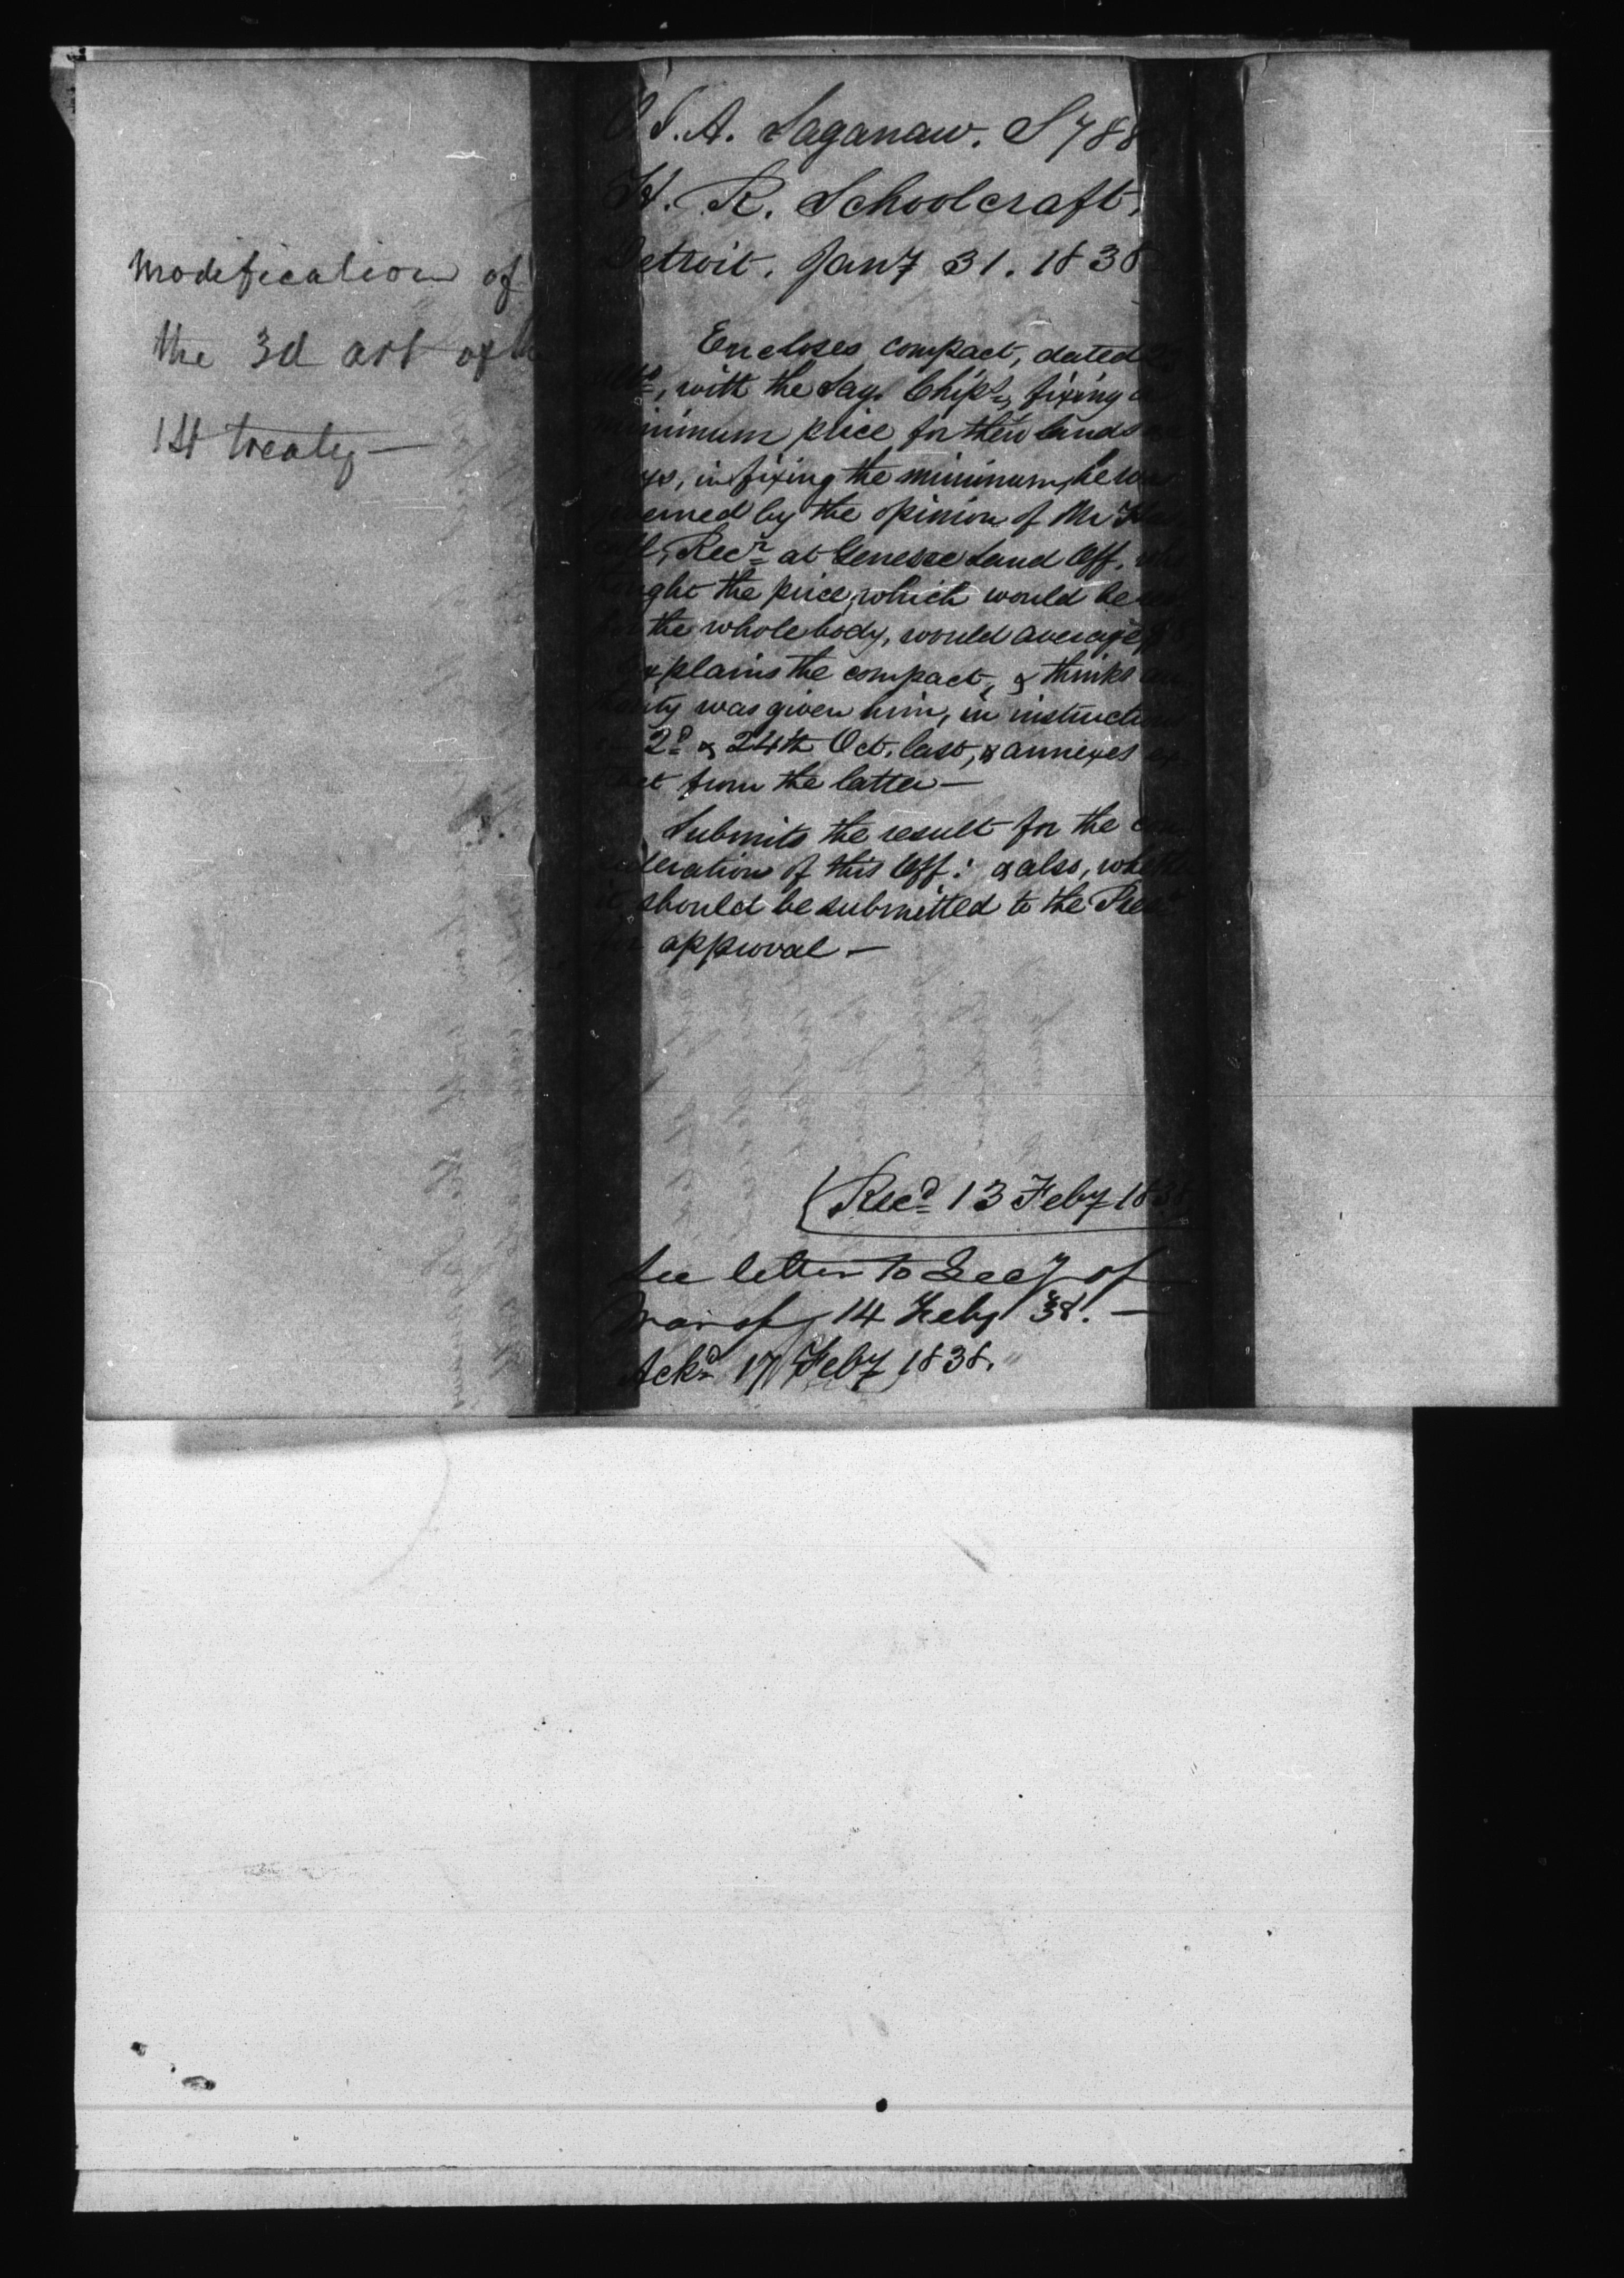 Modification of
the 3d art of the
1st treaty—
O I. A. Saganaw. S 788
H. R. Schoolcraft,
Detroit. Jany 31. 1838
Encloses compact, dated
ulto, with the Sag. Chips, fixing a
minimum price for their lands
Says, in fixing the minimum, he was
governed by the opinion of Mr
Recr at Genesee Land Off, who
thought the price, which would be
for the whole body, would average
Explains the compact, & thinks au
thority was given him, in instructions
2d & 24th Oct. last, & annexes ex
tract from the latter—
Submits the result for the con
sideration of this Off: & also, whether
it should be submitted to the Prest
for approval—
(Recd 13 Feby 1838
See letter to Secy of
War of 14 Feby '38.—
Ackd 17 Feby 1838.